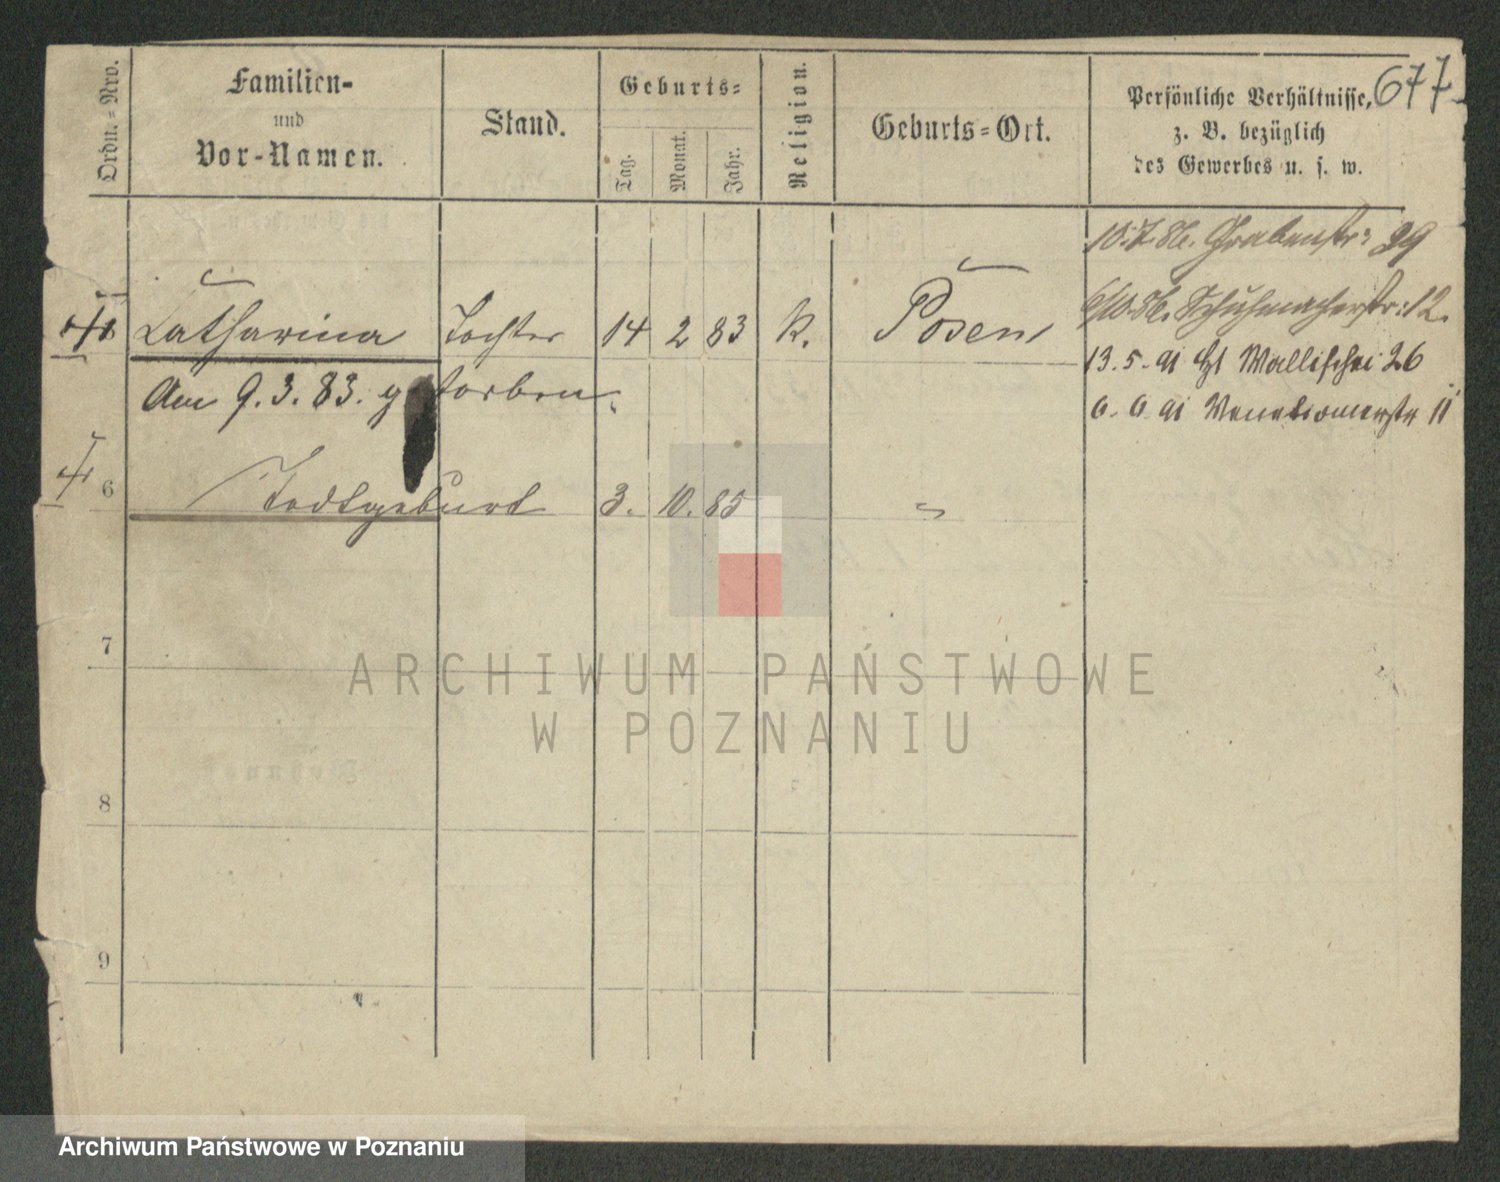 Ordn.=Nro.
Familien-
und
Vor-Namen.
Stand.
Geburts=
Tag.
Monat.
Jahr.
Religion.
Geburts=Ort.
Persönliche Verhältnisse,
z. B. bezüglich
des Gewerbes u. s. w.
677
10.7.86. Grabenstr: 29
Catharina Tochter 14 2 83 K. Posen
6/10.86. Schuhmacherstr: 12.
13. 5. 91 Wallischei 26
Am 9. 3. 83. gestorben.
6. 6. 91 Venetianerstr 11
6 Todtgeburt 3. 10. 85 "
7
8
9
ARCHIWUM PAŃSTWOWE
W POZNANIU
Archiwum Państwowe w Poznaniu